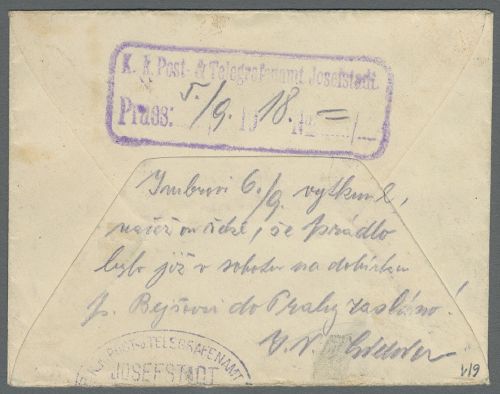 K. k. Post- & Telegrafenamt Josefstadt
Praes: 5/9. 1918. = Nr /
6./9. vytknul,
že prádlo
bylo již v sobotu na dobírku
p. do Prahy zasláno!
K.K. POST- u. TELEGRAFENAMT
JOSEFSTADT
V/9